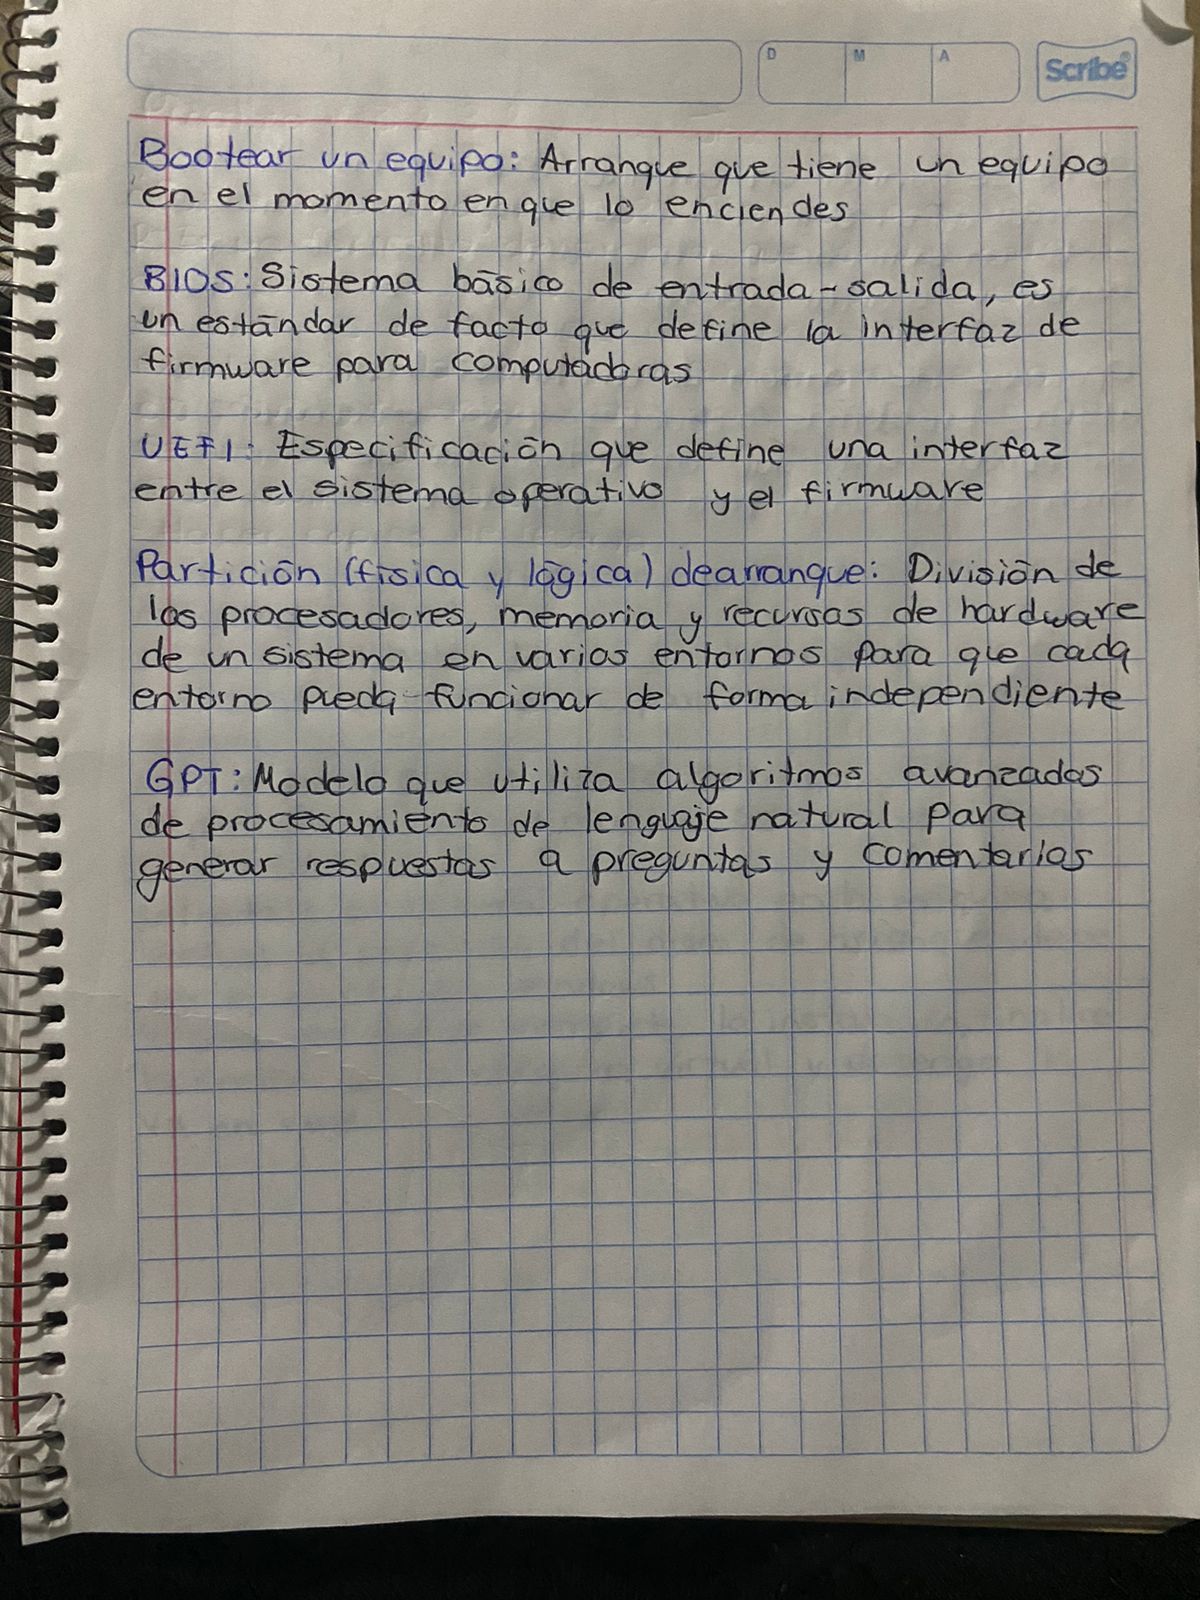 D M A Scribe®
Bootear un equipo: Arranque que tiene un equipo
en el momento en que lo enciendes
BIOS: Sistema básico de entrada-salida, es
un estándar de facto que define la interfaz de
firmware para computadoras
UEFI: Especificación que define una interfaz
entre el sistema operativo y el firmware
Partición (física y lógica) de arranque: División de
los procesadores, memoria y recursos de hardware
de un sistema en varios entornos para que cada
entorno pueda funcionar de forma independiente
GPT: Modelo que utiliza algoritmos avanzados
de procesamiento de lenguaje natural para
generar respuestas a preguntas y comentarios